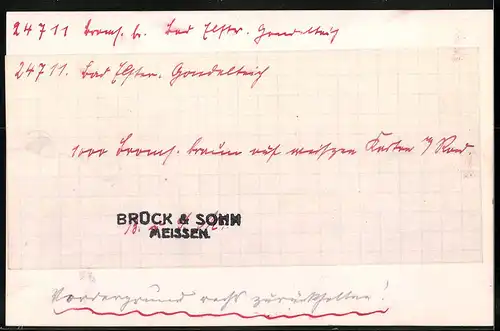 24711 Broms. br. Bad Elster. Gondelteich
24711. Bad Elster. Gondelteich
1000 Broms. braun auf weissen Karten m/ Rand.
BRÜCK & SOHN
MEISSEN.
Vordergrund rechts zurückhalten!